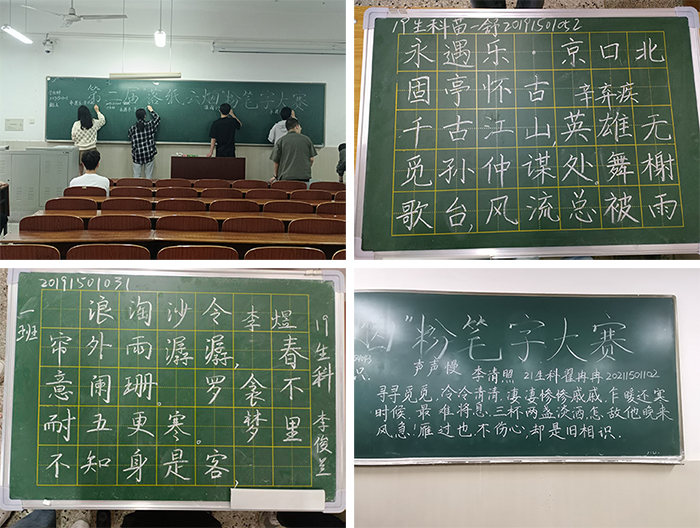 第二届"落纸云烟"粉笔字大赛
19生科苗一舒20191501052
永遇乐·京口北
固亭怀古 辛弃疾
千古江山,英雄无
觅孙仲谋处。舞榭
歌台,风流总被雨
20191501031
一班
浪淘沙令 李煜
帘外雨潺潺,春
意阑珊。罗衾不
耐五更寒。梦里
不知身是客,
19生科 李俊兰
烟"粉笔字大赛
识.
声声慢
李清照 21生科翟冉冉20211501102
寻寻觅觅.冷冷清清.凄凄惨惨戚戚.乍暖还寒
时候.最难将息.三杯两盏淡酒.怎敌他晚来
风急!雁过也.不伤心,却是旧相识.